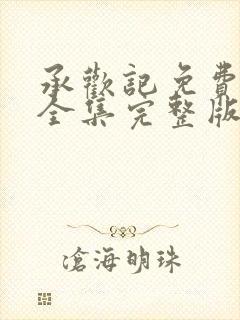 承歡記免費
全集完整版
滄海明珠